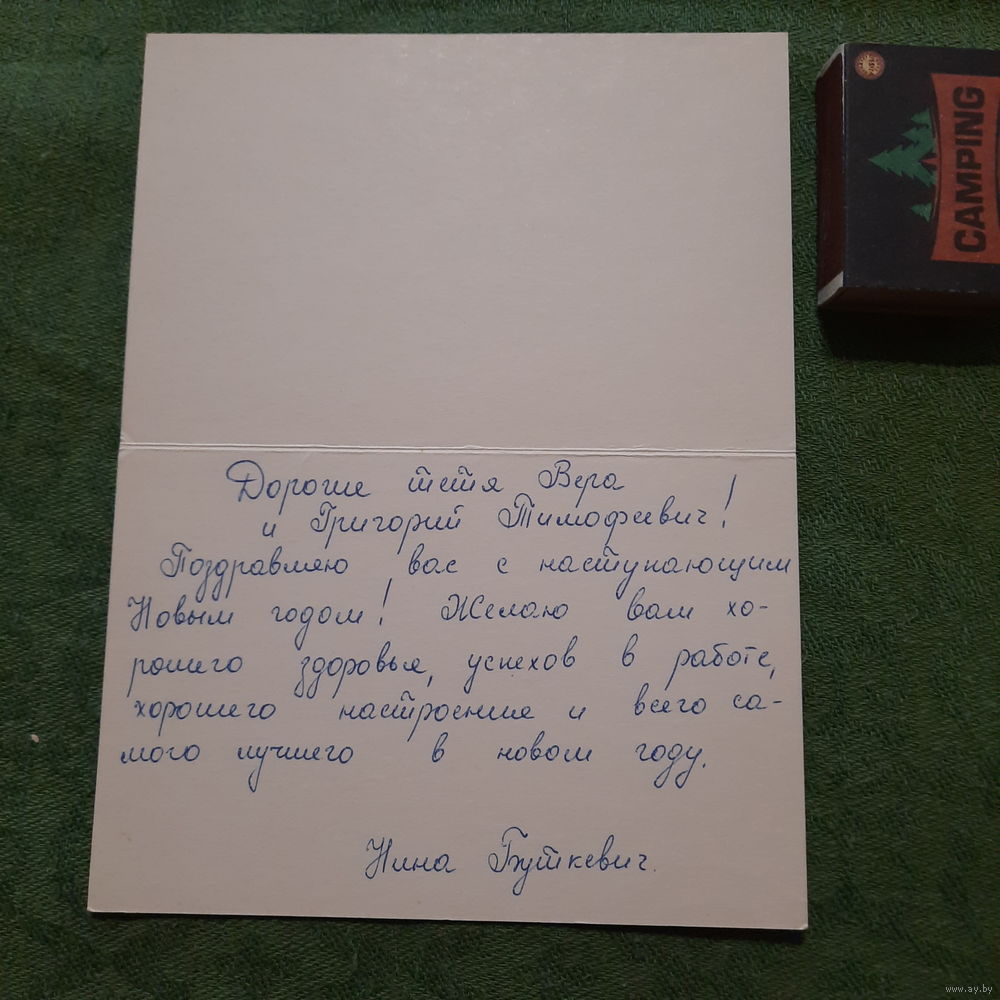 Дорогие тетя Вера
и Григорий Тимофеевич!
Поздравляю вас с наступающим
Новым годом! Желаю вам хо-
рошего здоровья, успехов в работе,
хорошего настроение и всего са-
мого лучшего в новом году.
Нина Буткевич.
CAMPING
www.ay.by